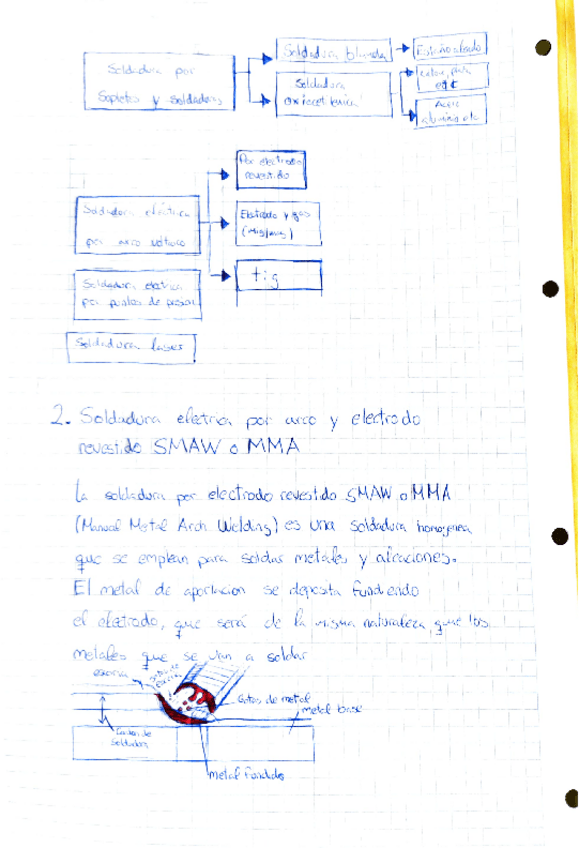 Soldadura por
Sopletes y Soldadores
Soldadura blanda
Estaño
Soldadura
oxiacetilenica
etc
Acero
aluminio etc
Por electrodo
revestido
Soldadura eléctrica
por arco voltaico
Electrodo y gas
(mig/mag)
tig
Soldadura electrica
por puntos de presion
Soldadura laser
2. Soldadura eletrica por arco y electrodo
revestido SMAW o MMA
La soldadura por electrodo revestido SMAW o MMA
(Manual Metal Arch Welding) es una soldadura homogenea
que se emplean para soldar metales y aleaciones.
El metal de aportacion se deposita fundiendo
el electrodo, que será de la misma naturaleza que los
metales que se van a soldar
escoria
Gotas de metal
metal base
Cordon de
Soldadura
metal fundido